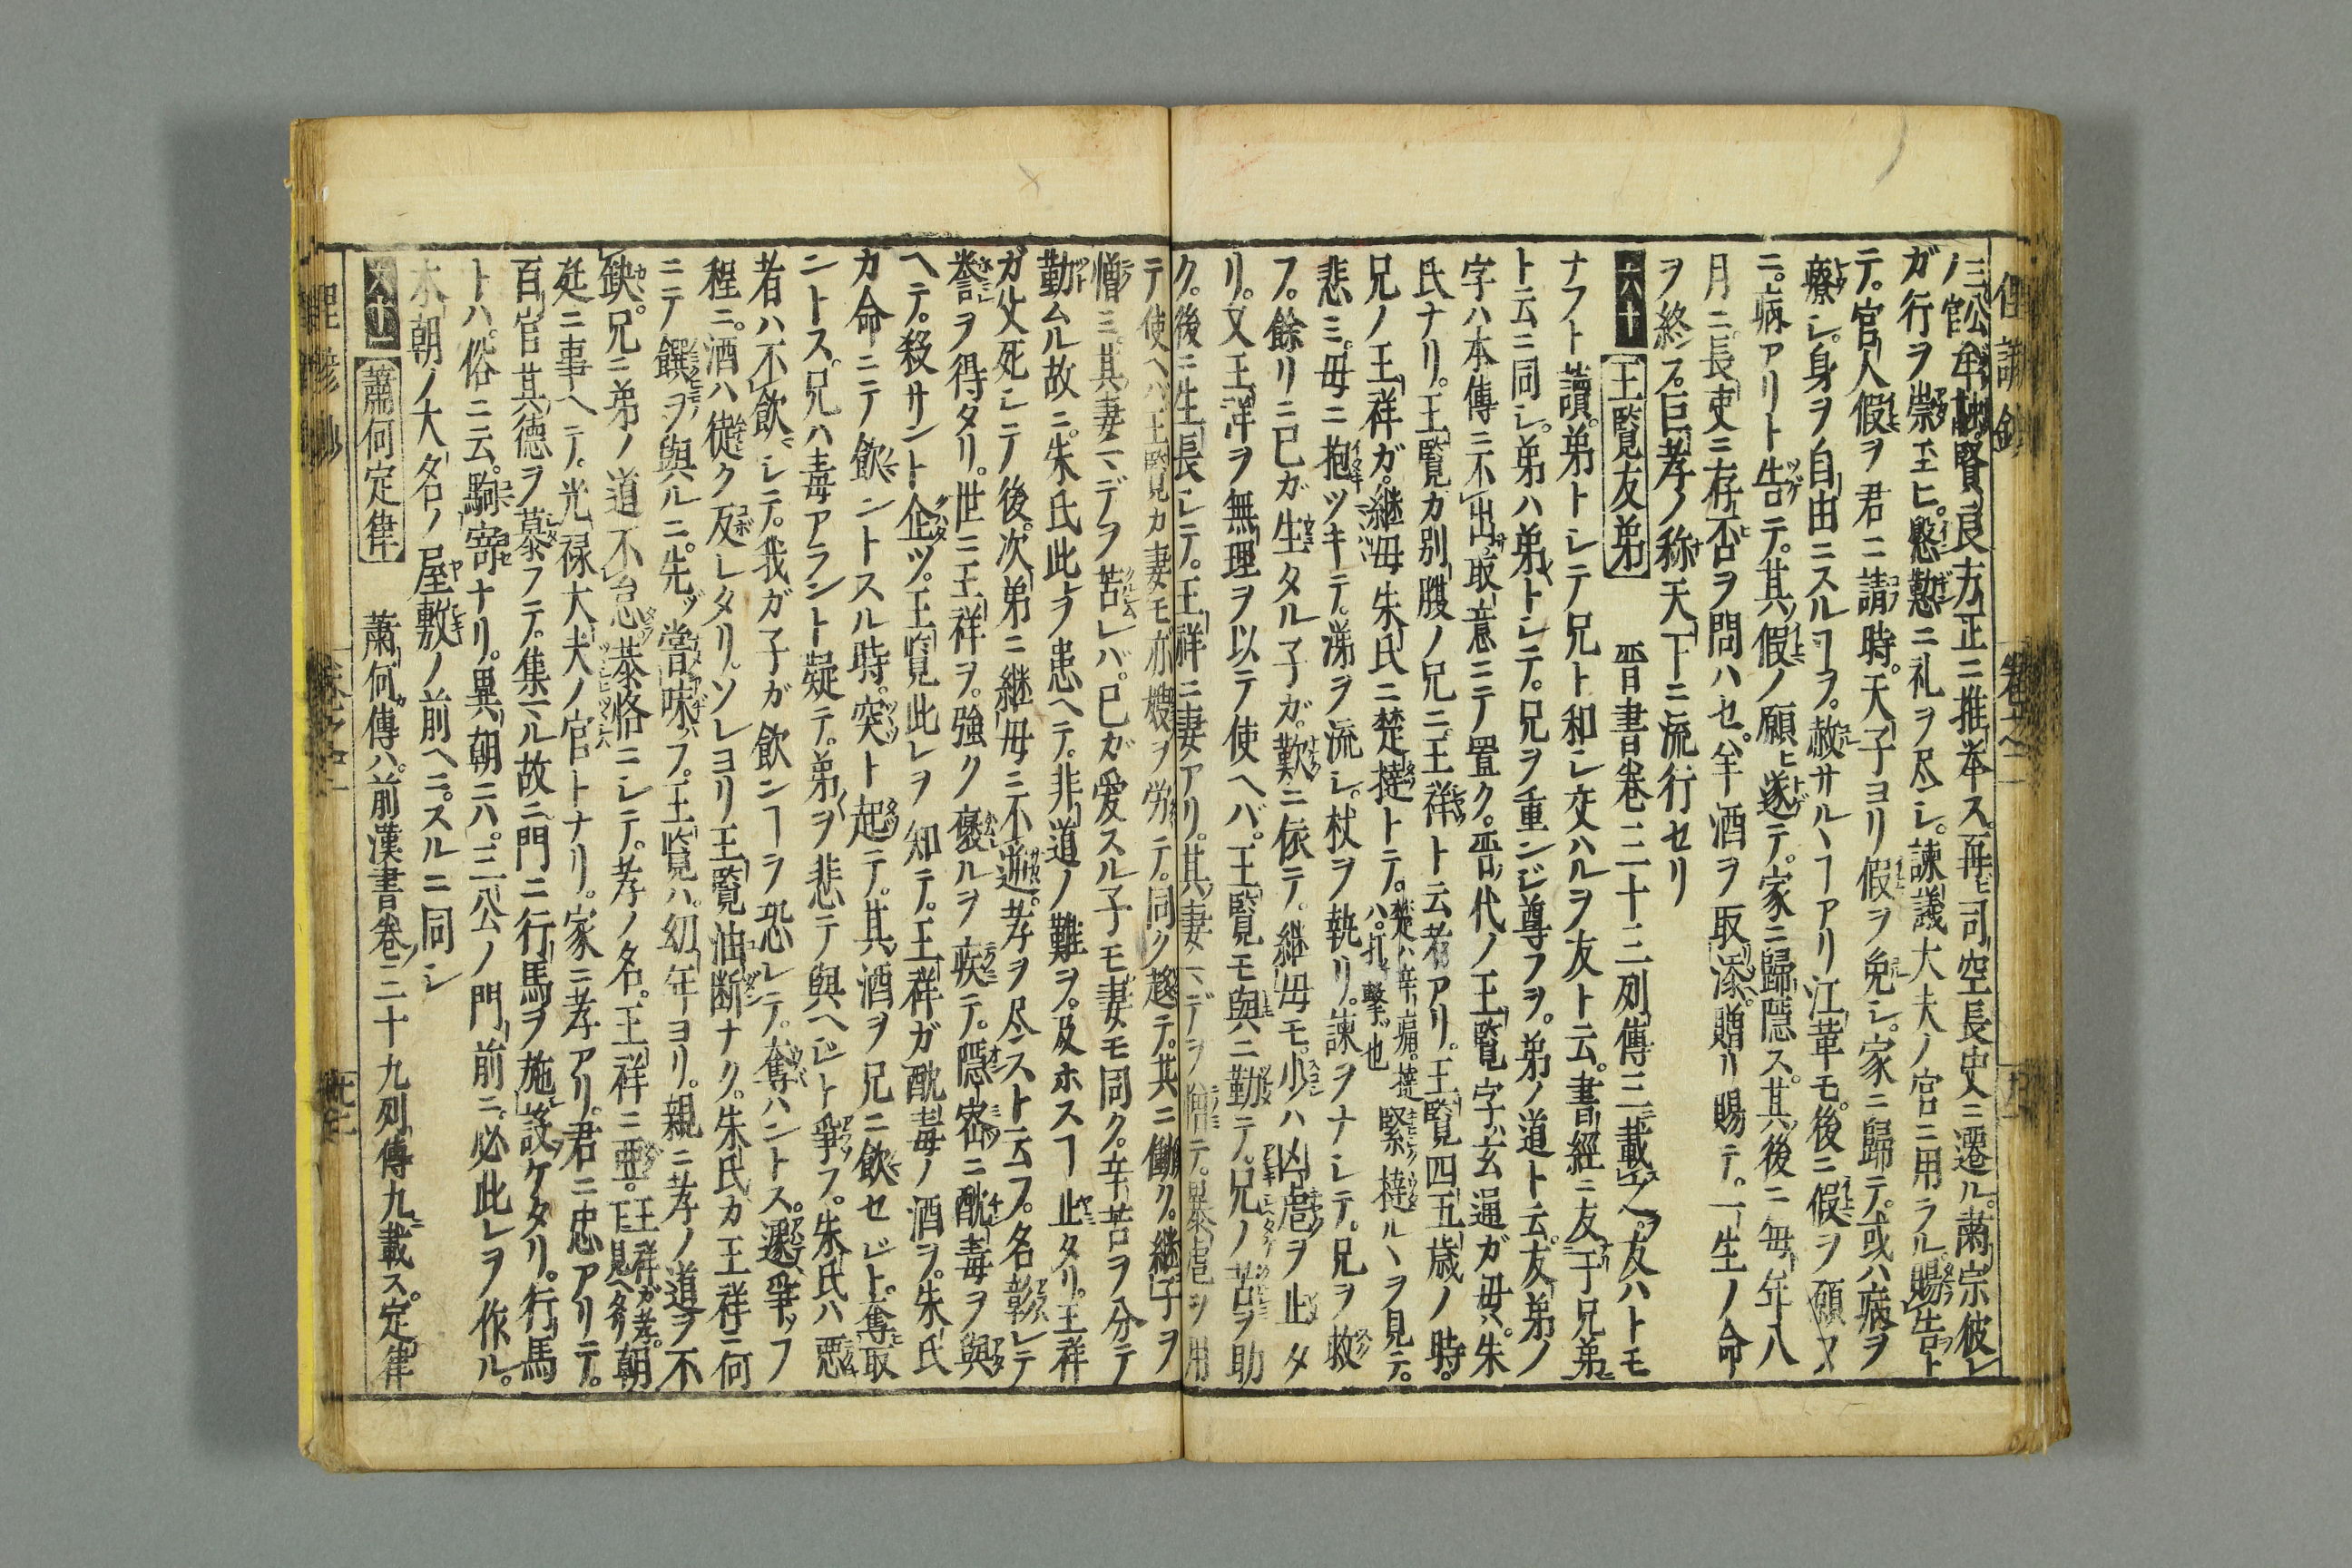 ノ三公官牟融賢良方正ニ推挙ス。再ビ司空長史ニ遷ル。肅宗彼レ
ガ行ヲ崇至ヒ。慇懃ニ礼ヲ尽シ。諫議大夫ノ官ニ用ラル。賜告ト
テ。官人假ヲ君ニ請時。天子ヨリ假ヲ免シ。家ニ歸テ。或ハ病ヲ
療シ。身ヲ自由ニスルヿヲ。赦サルヽヿアリ江革モ。後ニ假ヲ願又
ニ。病アリト告テ。其假ノ願ヒ遂テ。家ニ歸隱ス。其後ニ毎年八
月ニ。長吏ニ存否ヲ問ハセ。羊酒ヲ取添。贈リ賜テ。一生ノ命
ヲ終フ。巨孝ノ称天下ニ流行セリ
六十 王覧友弟 晋書巻三十三列傳三載之。友ハトモ
ナフト讀。弟トシテ兄ト和シ交ハルヲ友ト云。書經ニ友于兄弟
ト云ニ同シ。弟ハ弟トシテ。兄ヲ重ンジ尊フヲ。弟ノ道ト云。友弟ノ
字ハ本傳ニ不出。取意ニテ置ク。晋代ノ王覧字ハ玄通ガ母ハ。朱
氏ナリ。王覧カ別腹ノ兄ニ。王祥ト云者アリ。王覧四五歳ノ時。
兄ノ王祥ガ。継母朱氏ニ楚撻トテ。楚ハ辛痛。撻ハ。打撃也緊撻ルヽヲ見テ。
悲ミ。母ニ抱ツキテ。涕ヲ流シ。杖ヲ執リ。諫ヲナシテ。兄ヲ救
フ。餘リニ已ガ生タル子ガ。歎ニ依テ。継母モ。少ハ凶虐ヲ止タ
リ。又王祥ヲ無理ヲ以テ使ヘバ。王覧モ與ニ勤テ。兄ノ苦ヲ助
ク。後ニ生長シテ。王祥ニ妻アリ。其妻マデヲ憎テ。暴虐ヲ用
テ使ヘバ王覧カ妻モ亦嫂ヲ労テ。同ク趨テ。共ニ働ク。継子ヲ
憎ミ。其妻マデヲ苦レバ。已ガ愛スル子モ妻モ同ク。辛苦ヲ分テ
勤ムル故ニ。朱氏此ヲ患ヘテ。非道ノ難ヲ。及ホスヿ止タリ。王祥
ガ父死シテ後。次第ニ継母ニ不逆。孝ヲ尽ストテ云フ。名彰レテ
誉ヲ得タリ。世ニ王祥ヲ。強ク褒ルヲ疾テ。隠密ニ酖毒ヲ與
ヘテ。殺サント企ツ。王覧此レヲ知テ。王祥ガ酖毒ノ酒ヲ。朱氏
カ命ニテ飲ントスル時。突ト起テ。其酒ヲ兄ニ飲セジト。奪取
ントス。兄ハ毒アラント疑テ。弟ヲ悲テ與ヘジト爭フ。朱氏ハ惡
者ハ不飲シテ。我ガ子ガ飲ンヿヲ恐レテ。奪ハントス。遷爭フ
程ニ。酒ハ徒ク反レタリ。ソレヨリ王覧油断ナク。朱氏カ王祥ニ何
ニテ饌ヲ與ルニ。先ヅ嘗味フ。王覧ハ。幼年ヨリ。親ニ孝ノ道ヲ不
缺。兄ニ弟ノ道不怠恭恪ニシテ。孝ノ名。王祥ニ亞。王祥ガ孝。下見ヘタリ朝
廷ニ事ヘテ。光禄大夫ノ官トナリ。家ニ孝アリ。君ニ忠アリテ。
百官其德ヲ慕フテ。集マル故ニ門ニ行馬ヲ施設ケタリ。行馬
トハ。俗ニ云。駒寄ナリ。異朝ニハ。三公ノ門前ニ。必此レヲ作ル。
本朝ノ大名ノ屋敷ノ前ヘニ。スルニ同シ
六十一 蕭何定律 蕭何傳ハ。前漢書巻三十九列傳九載ス。定律